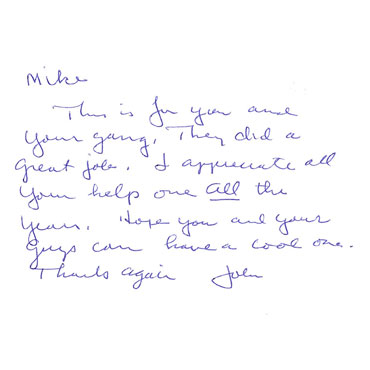 Mike
This is for you and
your gang. They did a
great job. I appreciate all
your help one all the
years. Hope you and your
guys can have a cool one.
Thanks again John